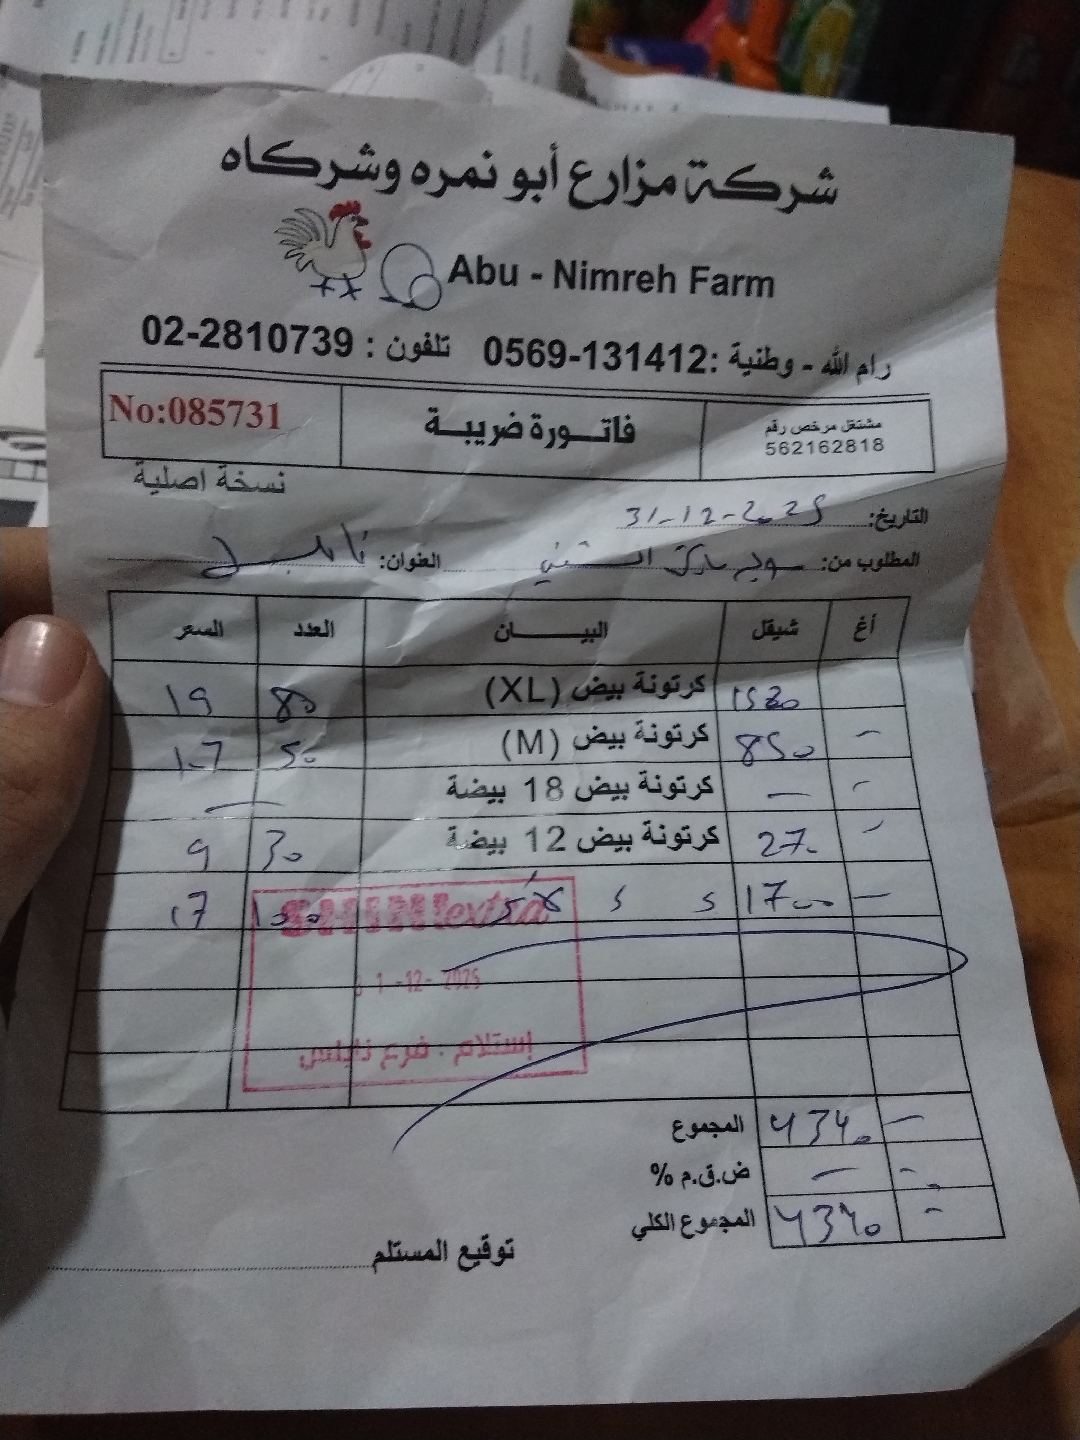 شركة مزارع أبو نمره وشركاه
Abu - Nimreh Farm
رام الله - وطنية :0569-131412 تلفون : 02-2810739
مشتغل مرخص رقم
562162818
فاتورة ضريبة
No:085731
نسخة اصلية
التاريخ: 31-12-2025
المطلوب من: سوبر ماركت الشني العنوان: نابلس
أغ شيقل البيــــان العدد السعر
1520 كرتونة بيض (XL) 80 19
- 850 كرتونة بيض (M) 50 17
- - كرتونة بيض 18 بيضة -
- 270 كرتونة بيض 12 بيضة 30 9
- 1700 100 17
SHINI extra
31-12-2025
إستلام . فرع نابلس
المجموع 4340 -
ض.ق.م % - -
المجموع الكلي 4340 -
توقيع المستلم